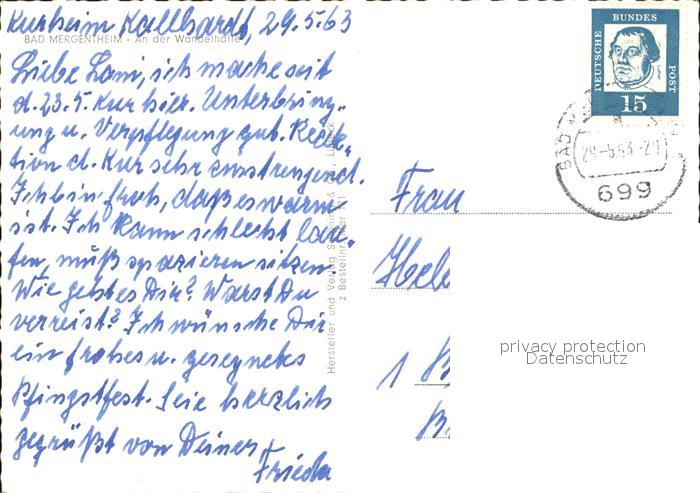 Kurheim Kallhardt, 29.5.63
BAD MERGENTHEIM - An der Wandelhalle
Liebe Lami, ich mache seit
d. 23.5. Kur hier. Unterbring-
ung u. Verpflegung gut. Reak-
tion d. Kur sehr anstrengend.
Ich bin froh, daß es warm
ist. Ich kann schlecht lau-
fen, muß spazieren sitzen
Wie geht es Dir? Warst Du
verreist? Ich wünsche Dir
ein frohes u. gesegnetes
Pfingstfest. Sei herzlich
gegrüßt von Deiner
Frieda
Hersteller und Verlag
z Bestellnummer
DEUTSCHE
BUNDES
POST
Luther
15
BAD
29.-5.63.-20
699
Frau
Hele
1
privacy protection
Datenschutz